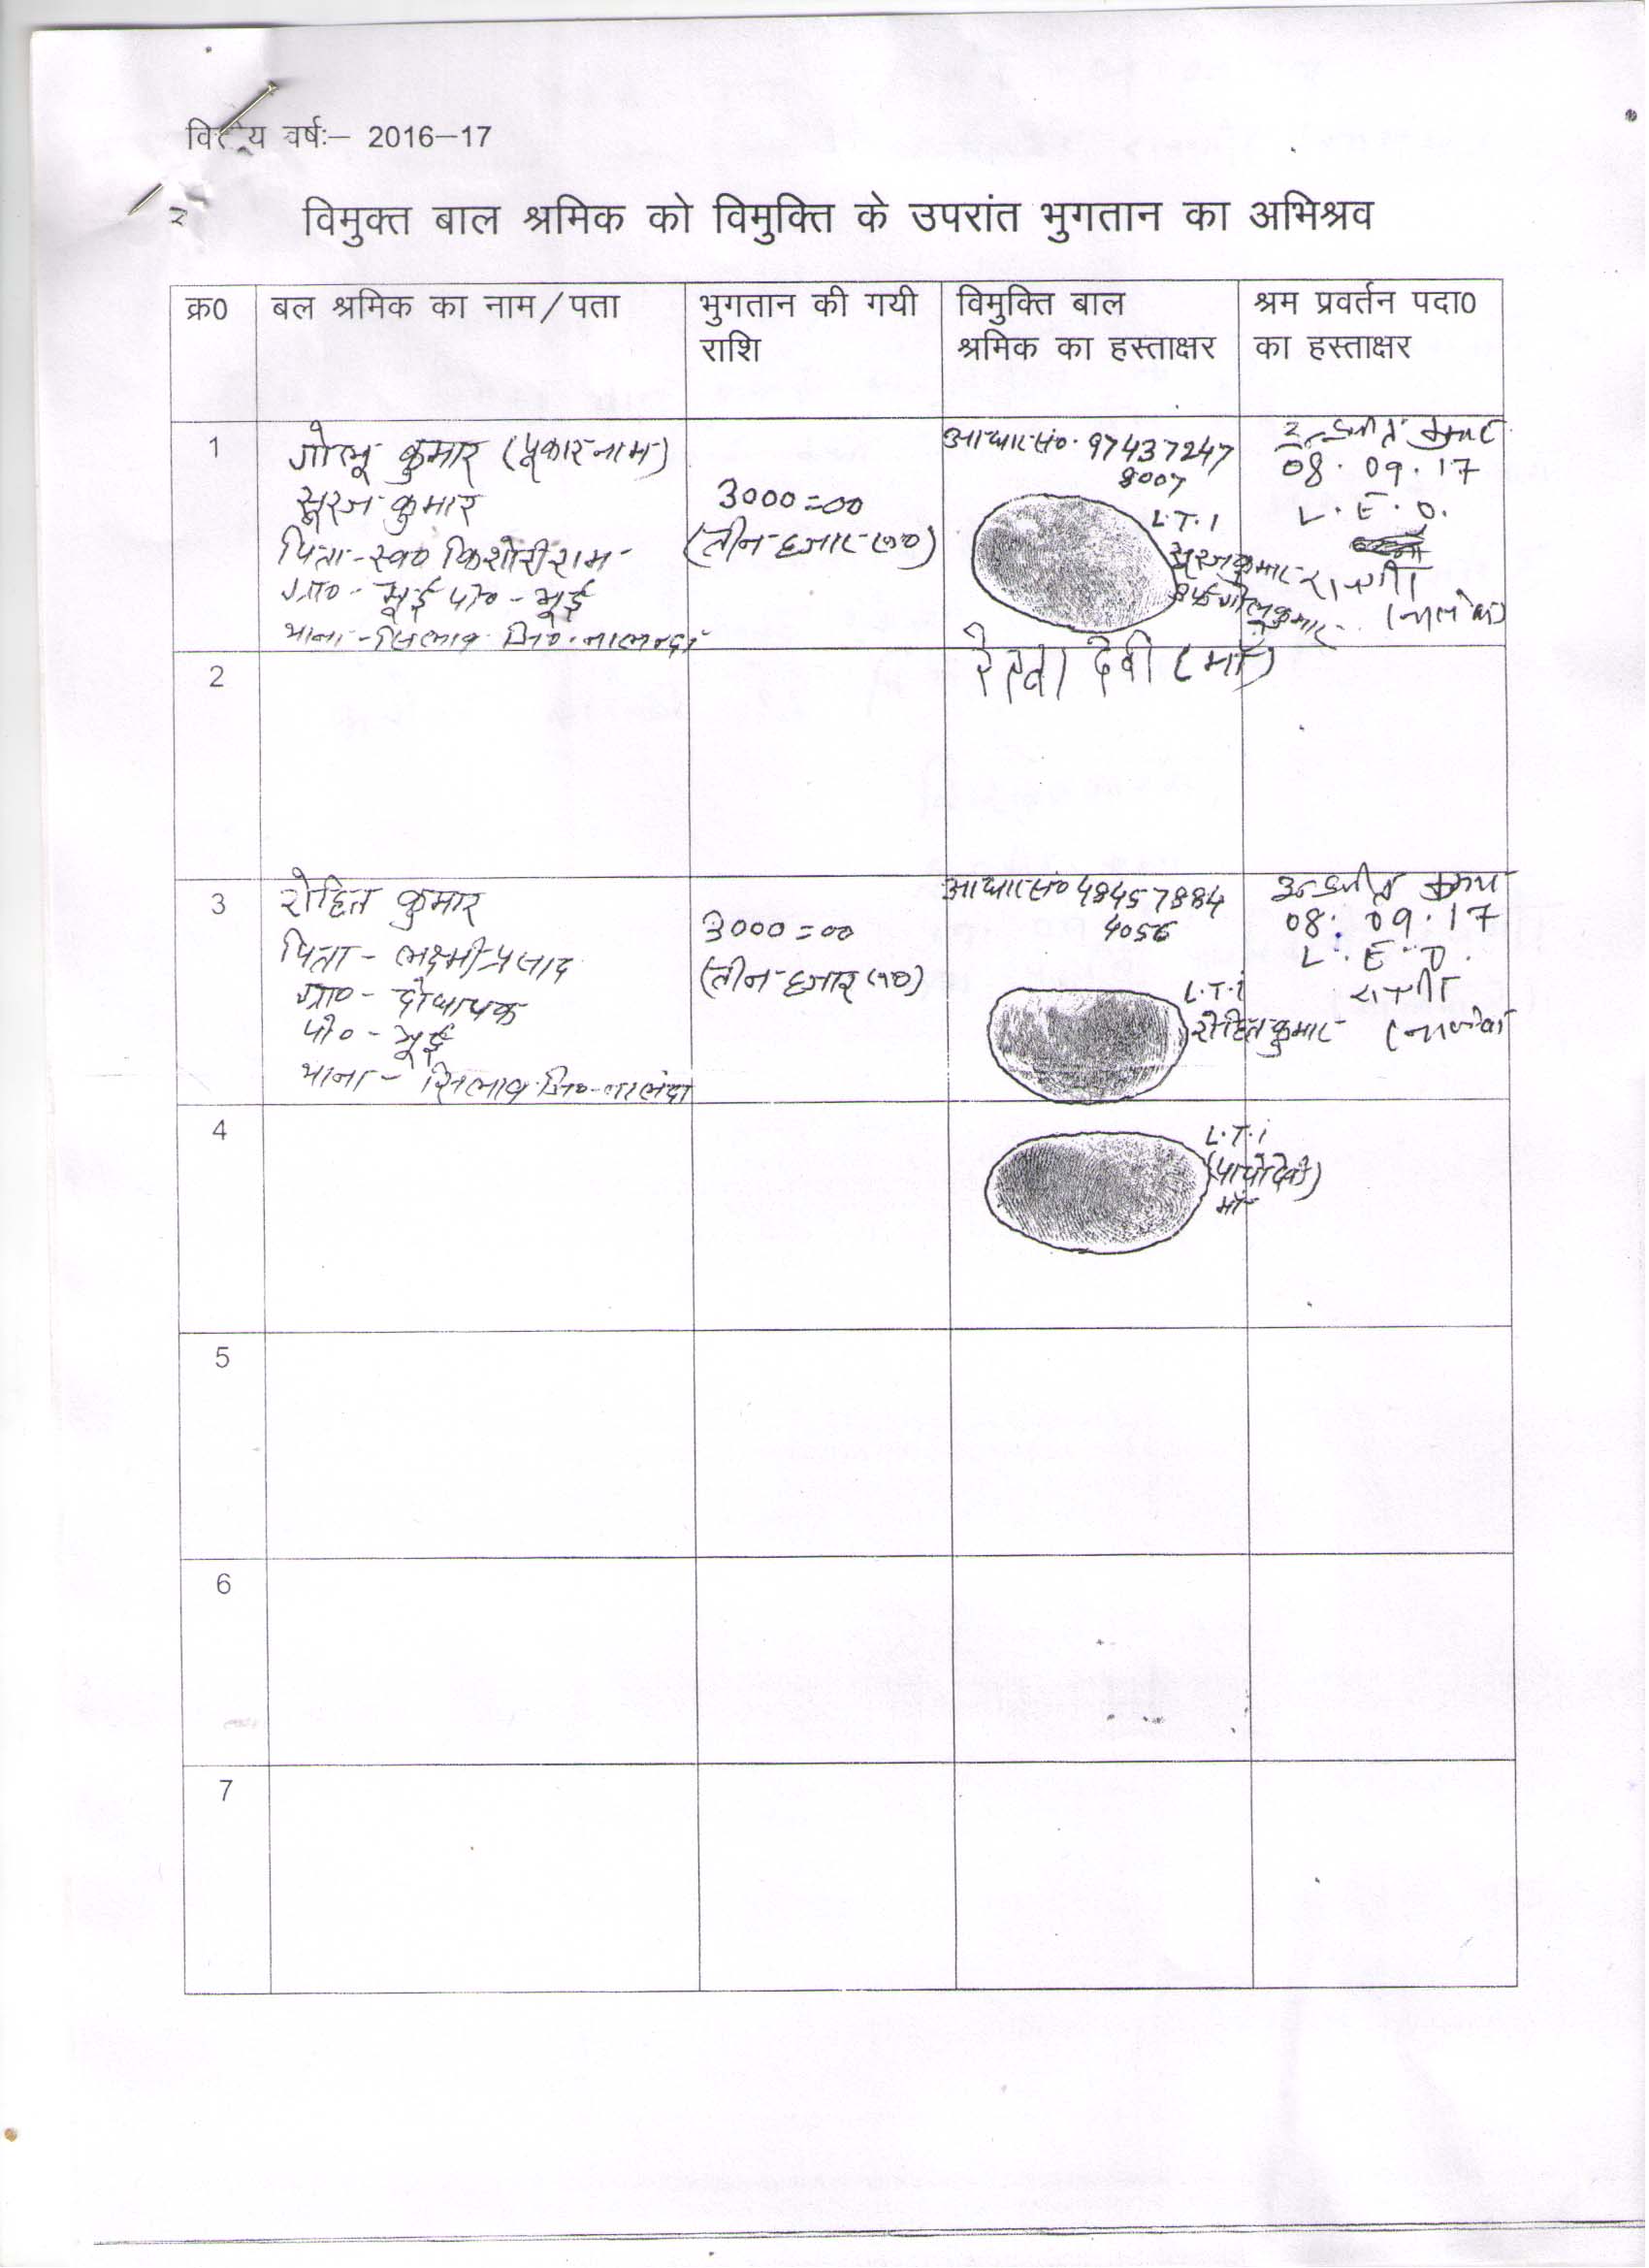 वित्तीय वर्षः– 2016–17
विमुक्त बाल श्रमिक को विमुक्ति के उपरांत भुगतान का अभिश्रव
क्र0
बल श्रमिक का नाम/पता
भुगतान की गयी
राशि
विमुक्ति बाल
श्रमिक का हस्ताक्षर
श्रम प्रवर्तन पदा0
का हस्ताक्षर
1
गोलू कुमार (पूकार नाम)
सूरज कुमार
पिता - स्व० किशोरी राम
ग्रा० - भूई पो० - भूई
थाना - सिलाव जि०- नालन्दा
3000=00
(तीन हजार रू०)
आधार सं०. 97437247
8007
L.T.I
सूरज कुमार
उर्फ गोलू कुमार
रेखा देवी (माँ)
08.09.17
L.E.O.
2
3
रोहित कुमार
पिता - लक्ष्मी प्रसाद
ग्रा० -
पो० - भूई
थाना - सिलाव जि०- नालंदा
3000=00
(तीन हजार रू०)
आधार सं० 48457884
4056
L.T.I
रोहित कुमार
08.09.17
L.E.O.
4
L.T.I
माँ
5
6
7